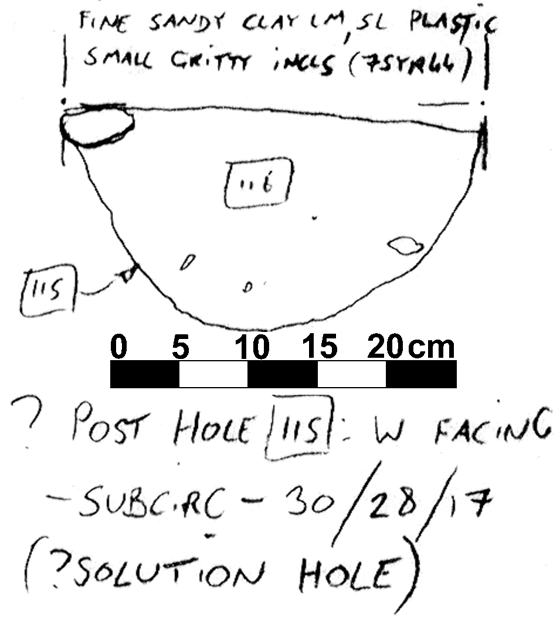 FINE SANDY CLAY LM, SL PLASTIC
SMALL GRITTY INCLS (75YR44)
116
115
0 5 10 15 20 cm
? POST HOLE 115: W FACING
- SUBCIRC - 30/28/17
(?SOLUTION HOLE)